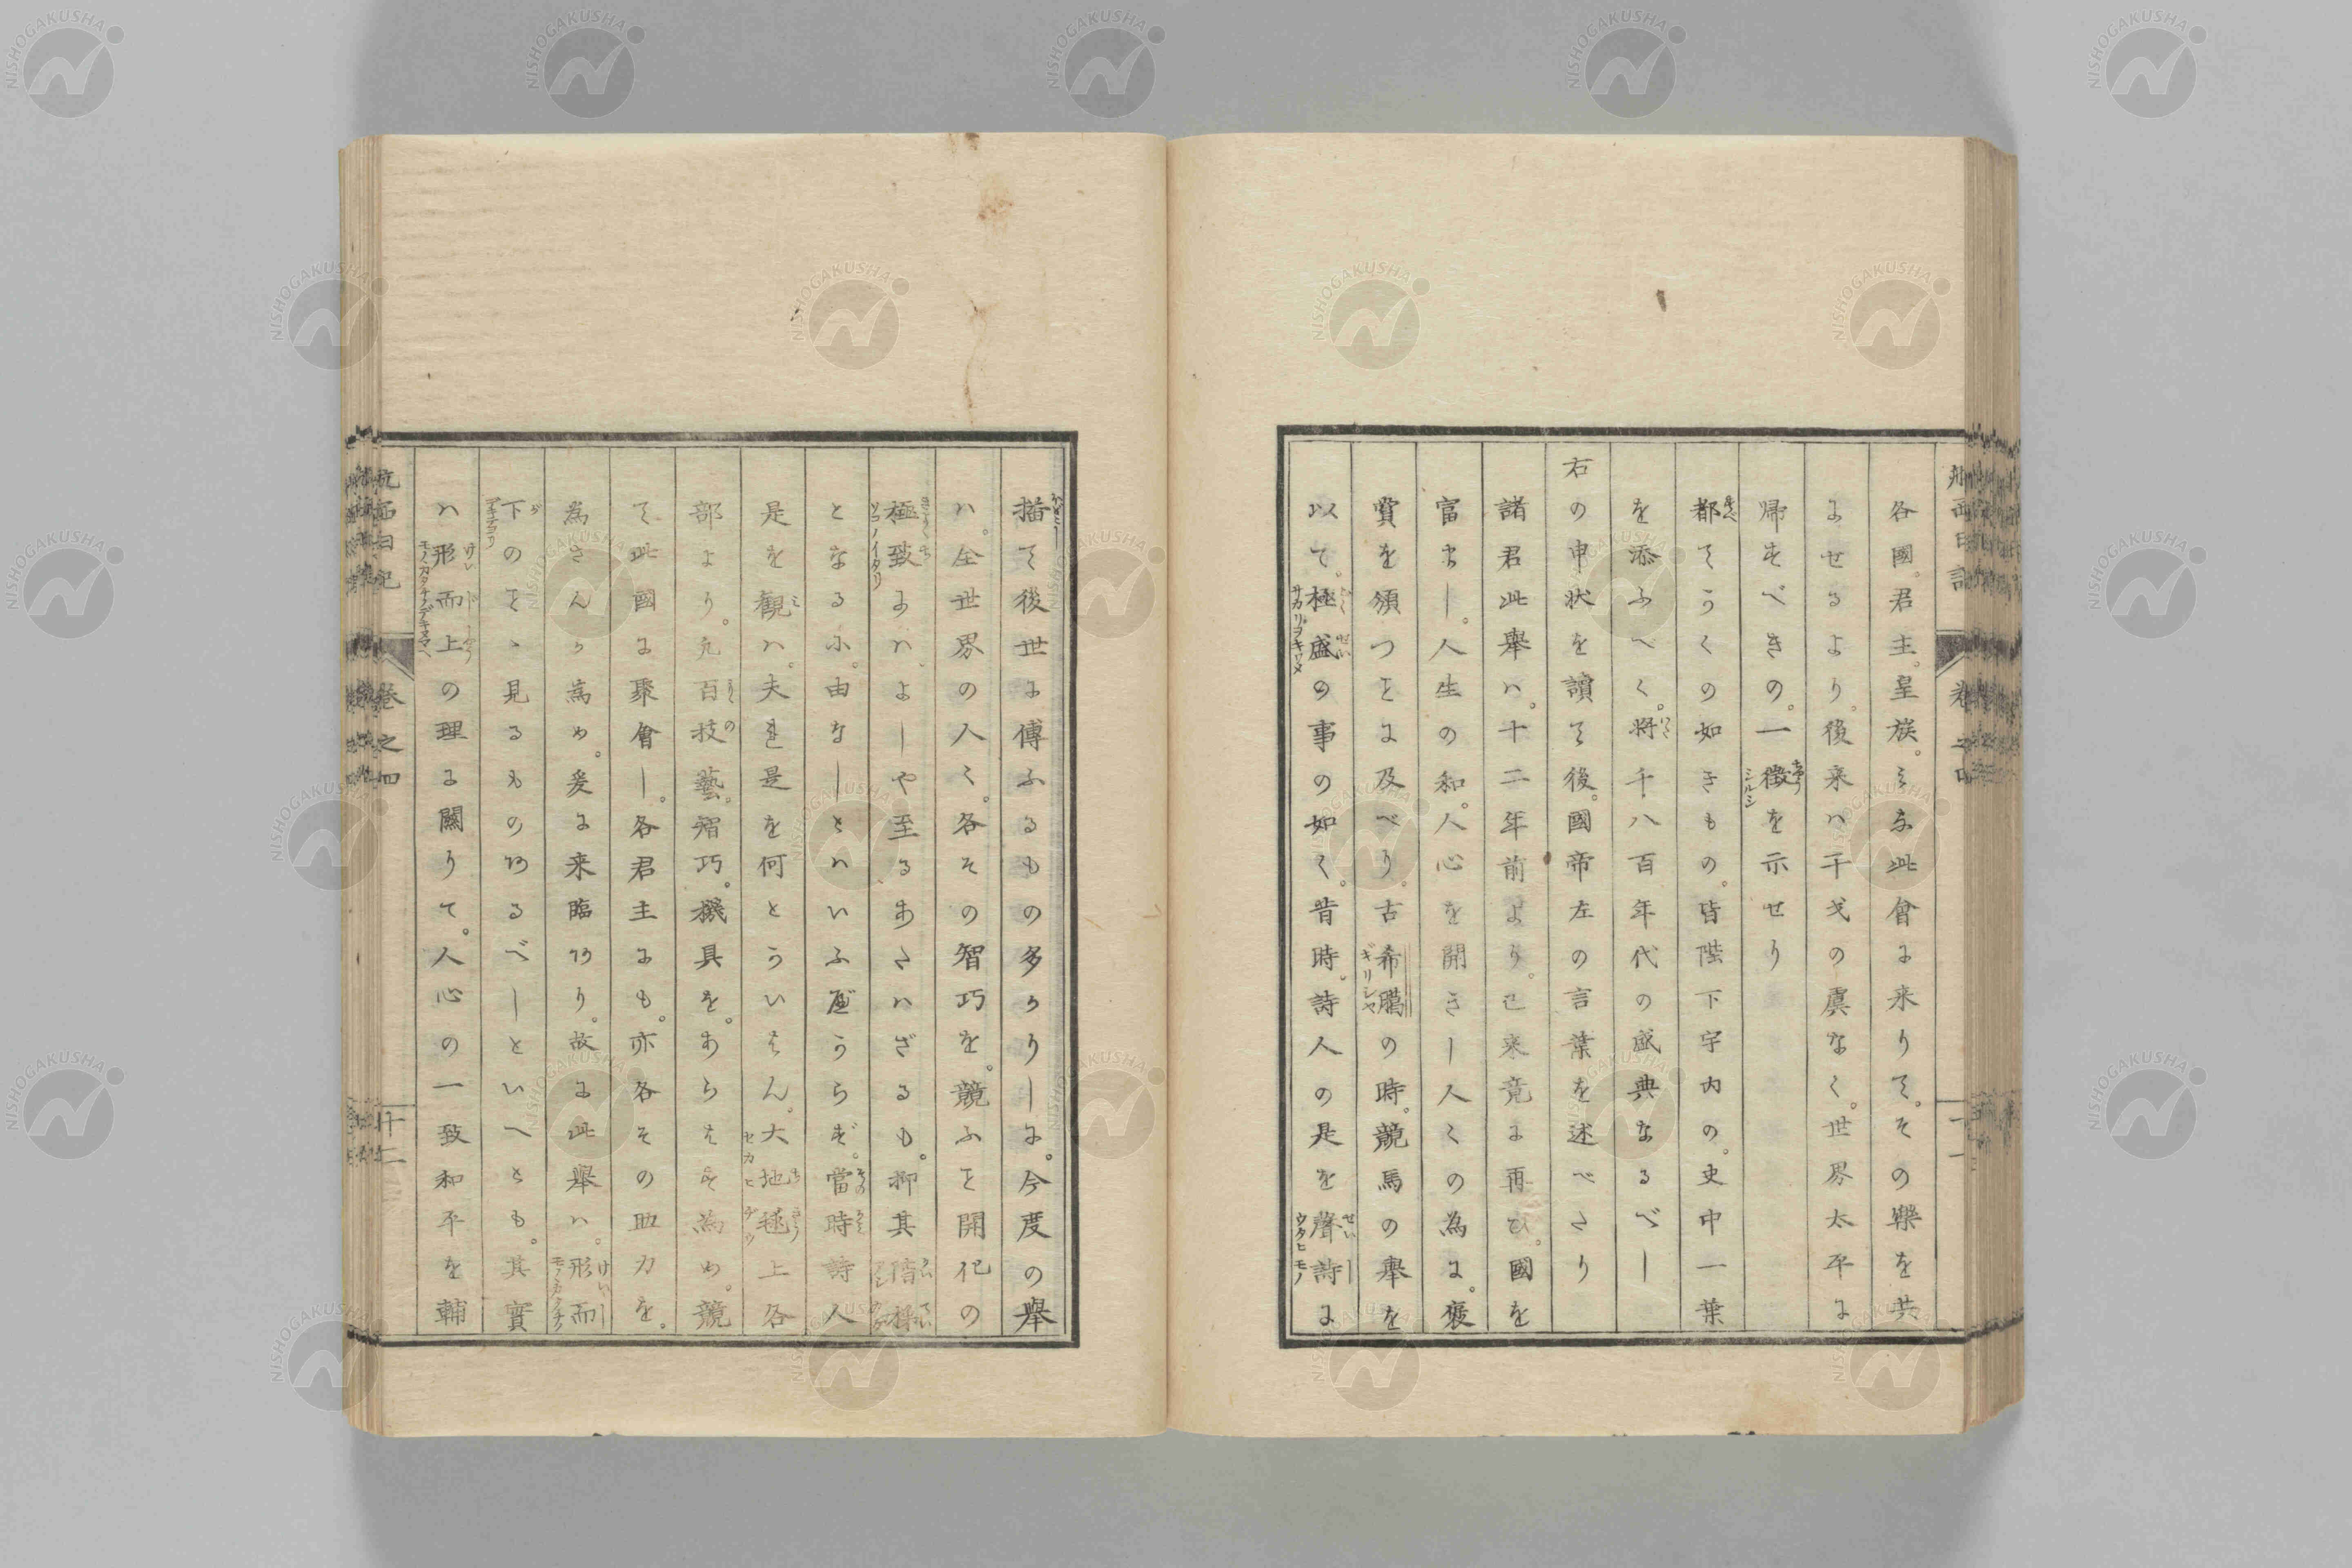 各國。君主。皇族。ミな此會に来りて。その樂を共
にせるより。後来ハ干戈の虞なく。世界太平に
歸すべきの。一徴を示せり
都てかくの如きもの。皆陛下宇内の。史中一葉
を添ふべく。将千八百年代の盛典なるべし
右の申状を讀て後。國帝左の言葉を述べさり
諸君此舉ハ。十二年前より。已来竟に再ひ。國を
富まし。人生の和。人心を開きし人〻の為に。褒
賞を頒つとに及べり。古希臈の時。競馬の舉を
以て。極盛の事の如く。昔時。詩人の是を聲詩に
描て後世に傳ふるもの多かりしに。今度の舉
ハ。全世界の人〻。各その智巧を。競ふと開化の
極致にハ、よしや至るあたハざるも。抑其
となる小。由なしとハいふ
うらず。當時詩人
是を觀ハ。夫是を何とかいはん。大地毬上各
部より。凡百技藝。智巧。機具を。あらはす為め。競
て此國に聚會し。各君主にも。亦各その助力を。
為さんか為め。爰に来臨あり。故に此舉ハ。形而
下のと、見るものあるべしといへとも。其實
ハ形而上の理に關りて。人心の一致和平を輔
航西日記
卷之四
十二